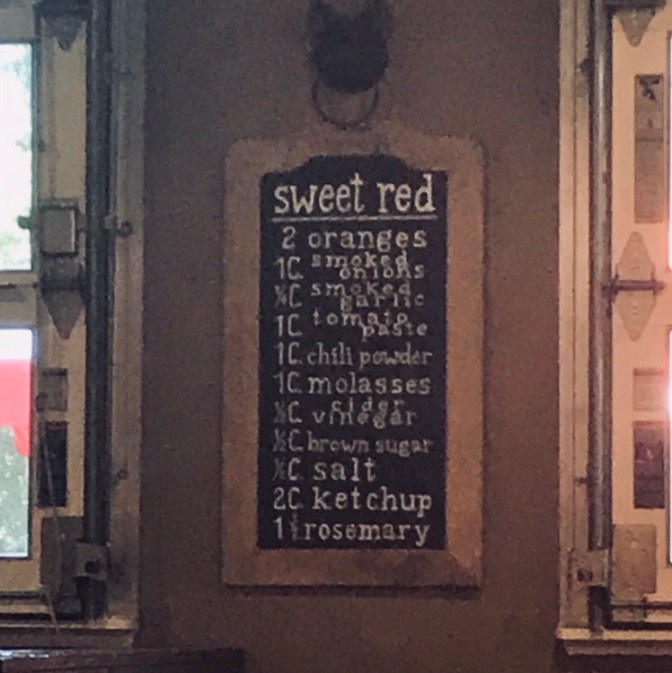 sweet red
2 oranges
1C. smoked onions
C. smoked garlic
1C. tomato paste
1C. chili powder
1C. molasses
C. cider vinegar
C. brown sugar
C. salt
2C. ketchup
1 rosemary